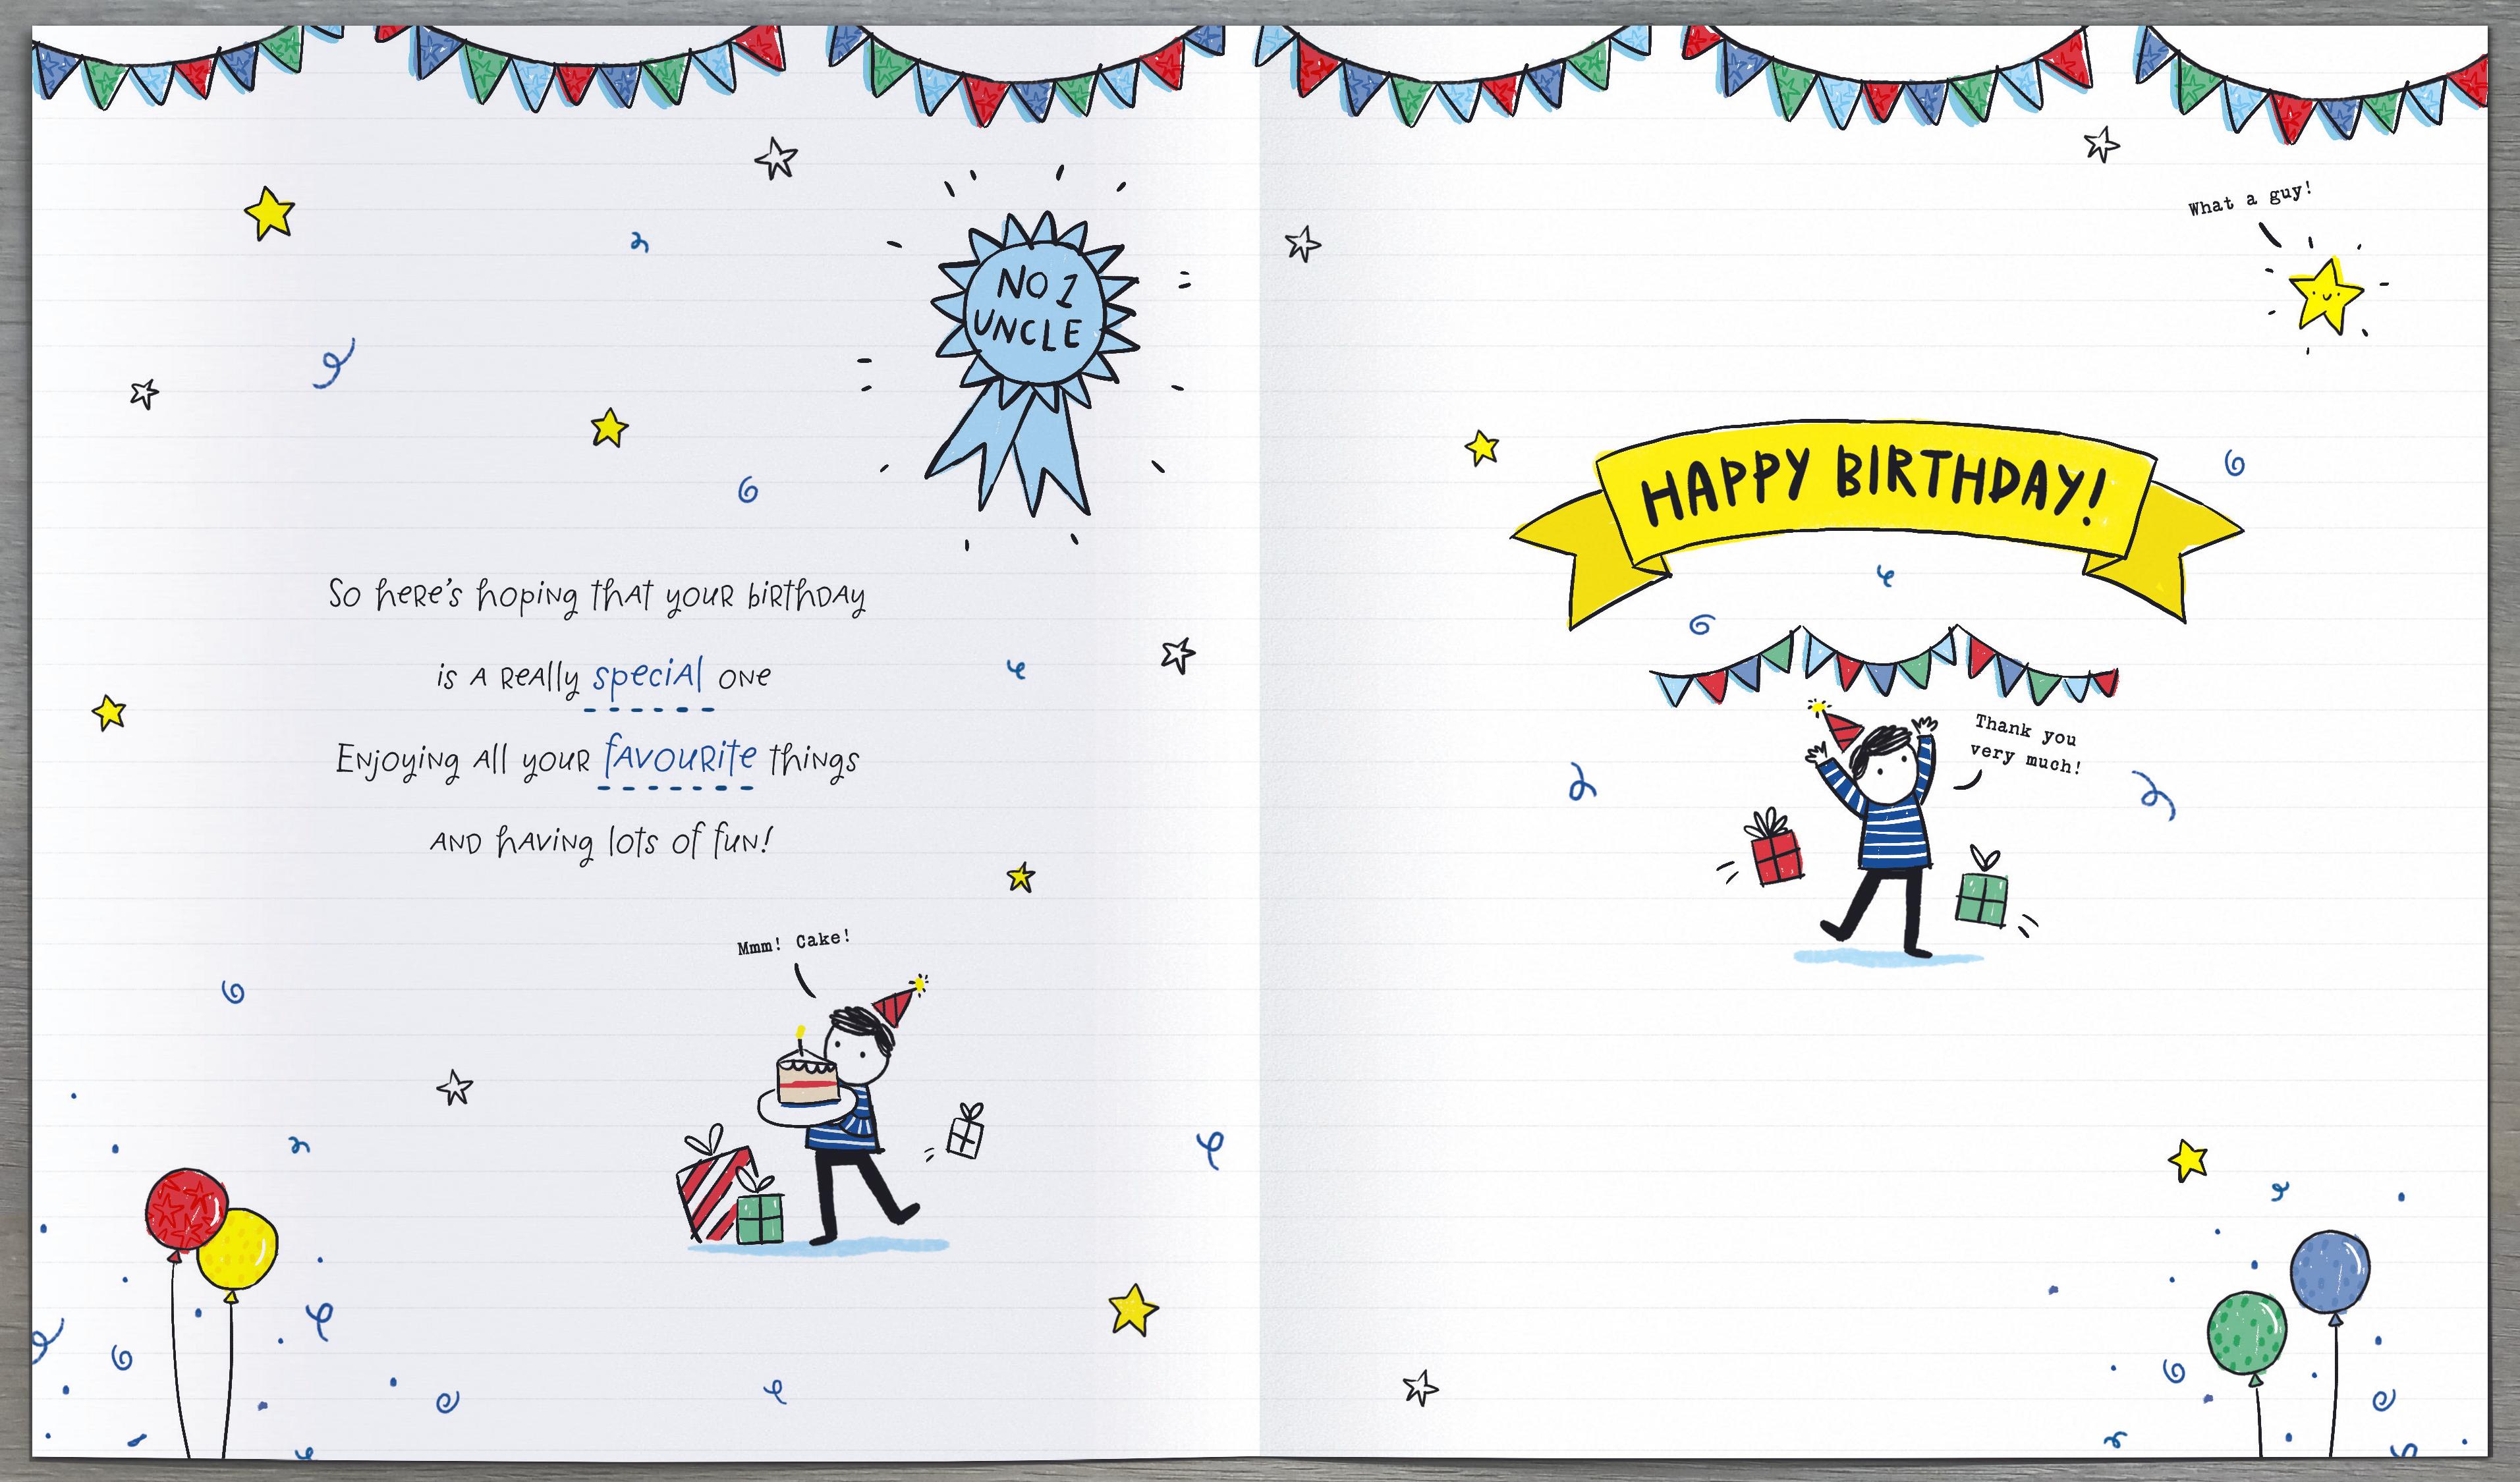 NO 1
UNCLE
So here's hoping that your birthday
is a really special one
Enjoying all your favourite things
and having lots of fun!
Mmm! Cake!
What a guy!
HAPPY BIRTHDAY!
Thank you
very much!